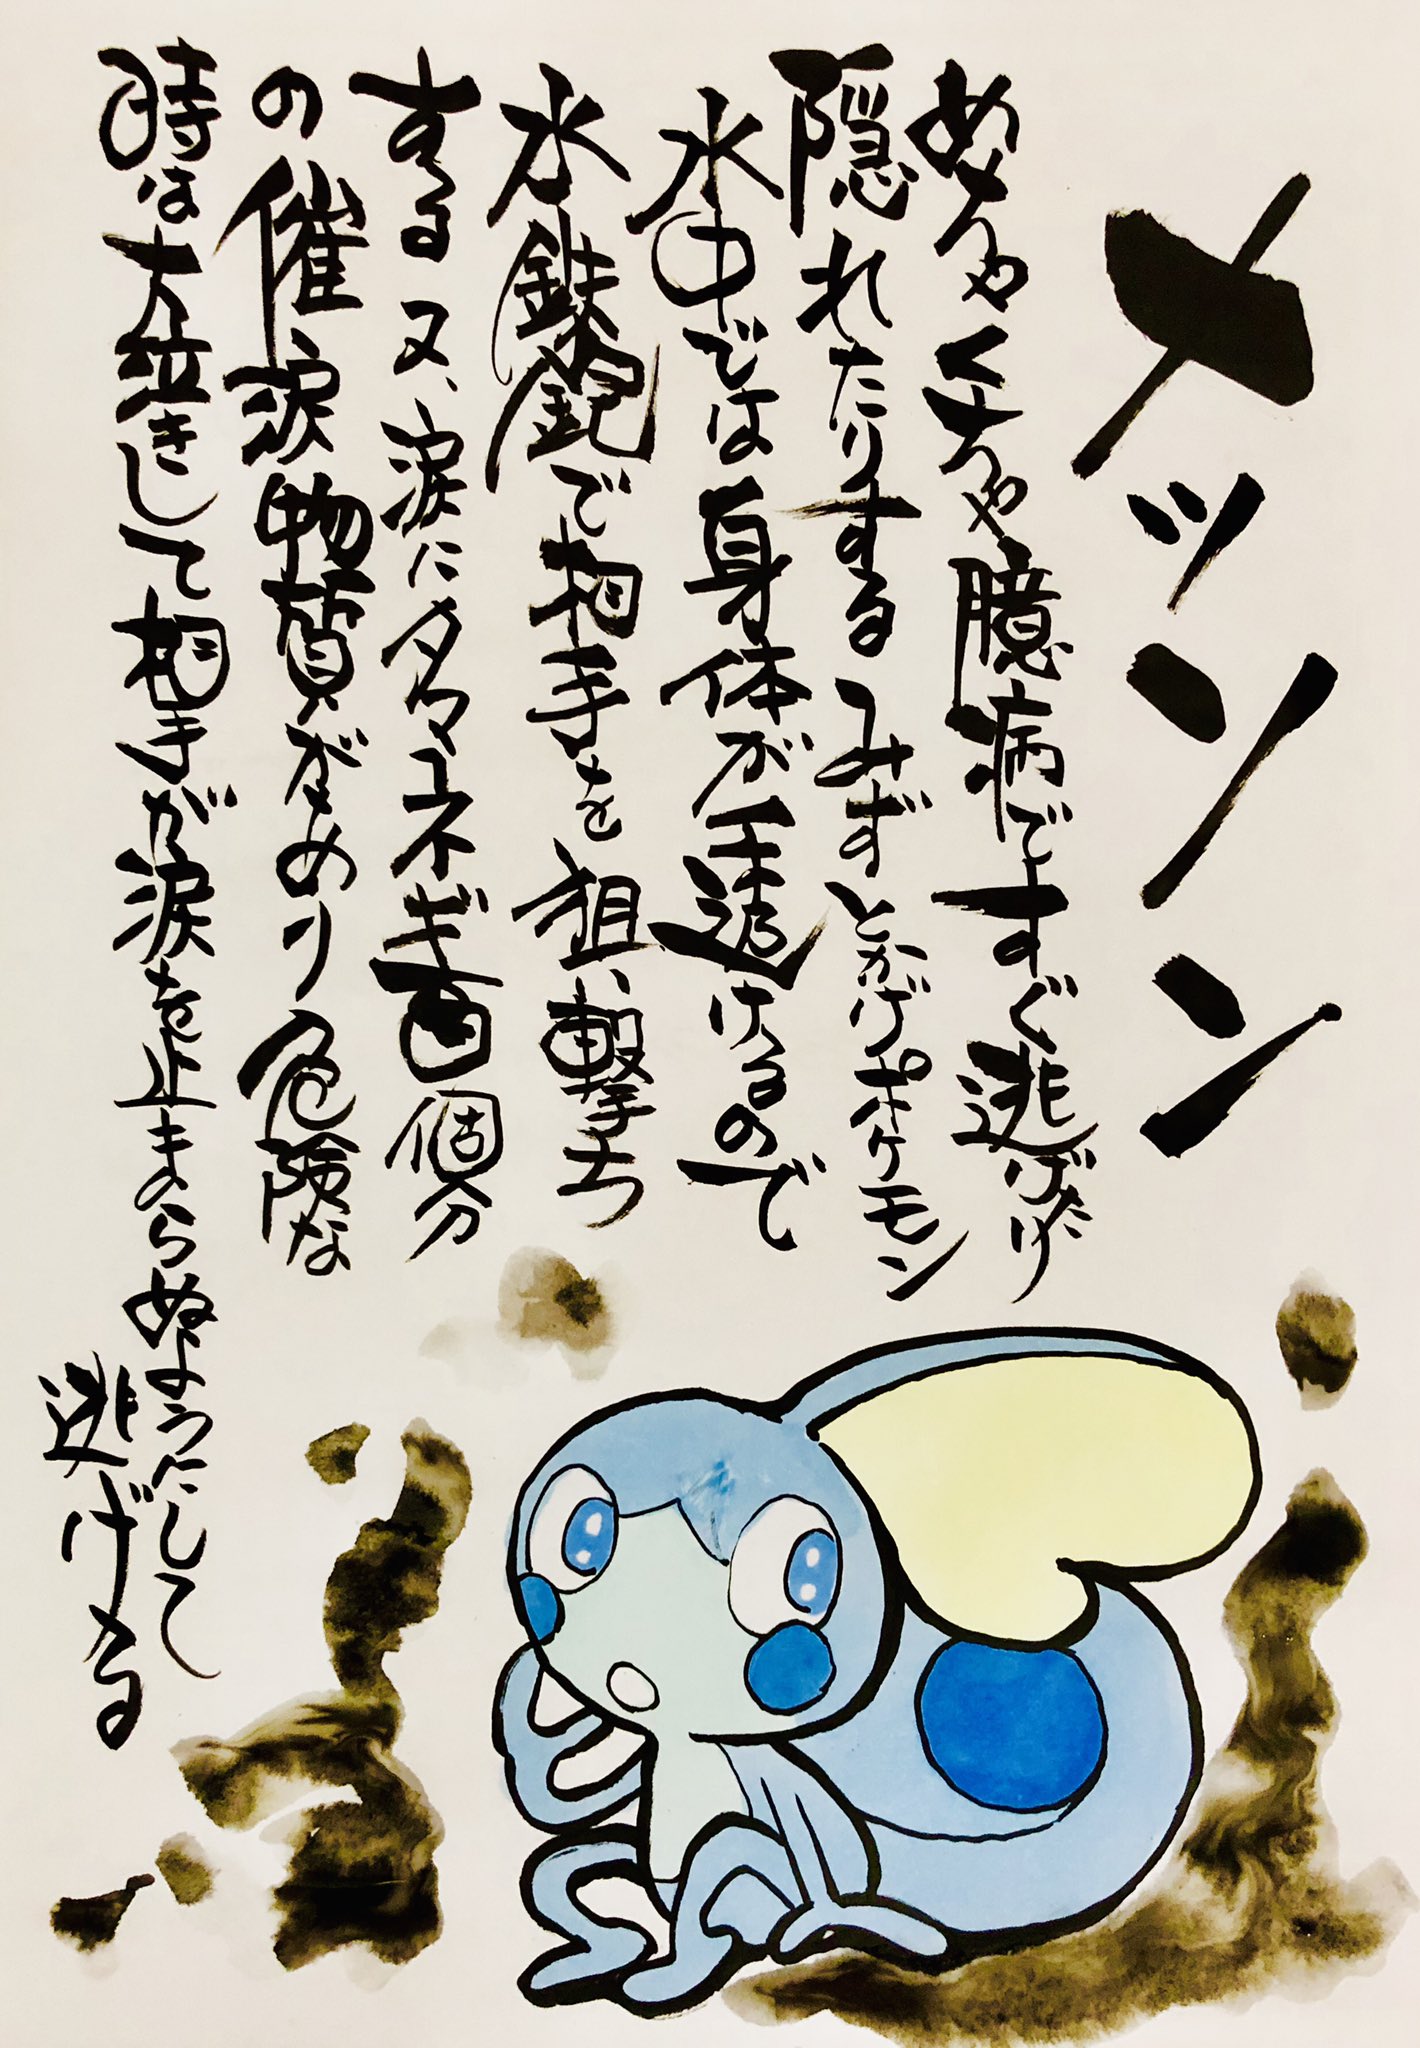 メッソン
めちゃくちゃ臆病ですぐ逃げたり
隠れたりするみずとかげポケモン
水中では身体が透けるので
水鉄砲で相手を狙い撃ち
する又、涙にタマネギ百個分
の催涙物質がめり危険な
時は大泣きして相手が涙を止まらぬようにして
逃げる